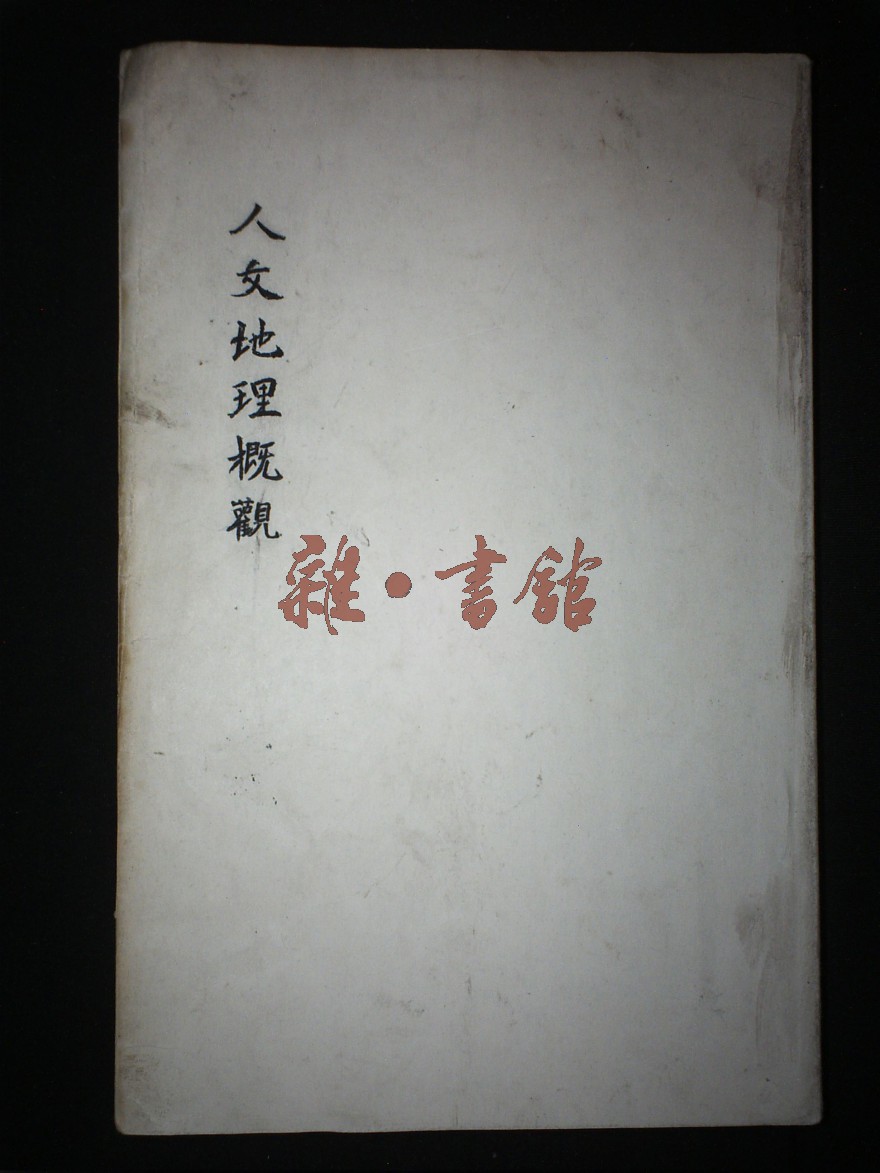 人文地理概觀
雜·書館